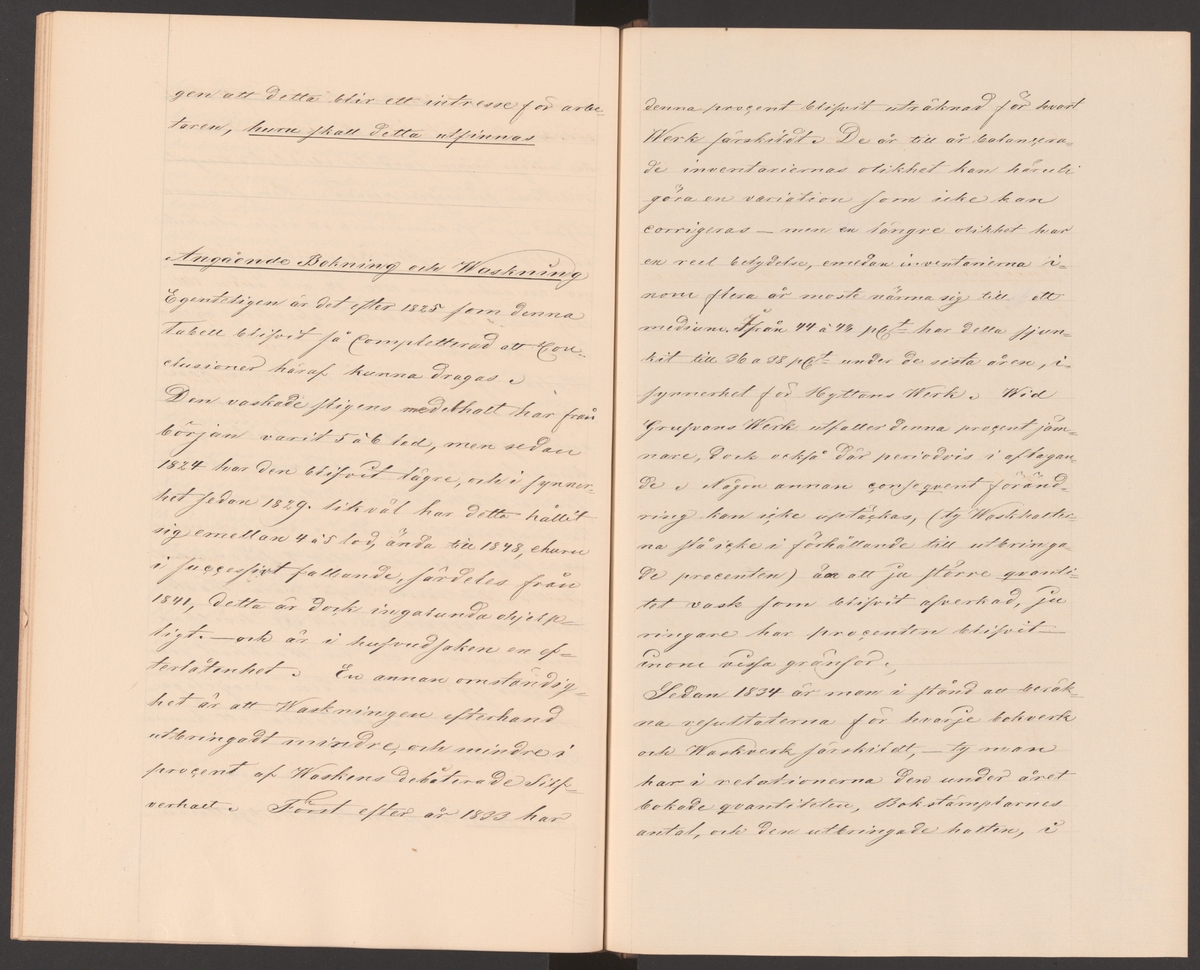 gen att detta blir ett intresse för arbe-
taren, huru skall detta utfinnas
Angående Bokning och Waskning
Egenteligen är det efter 1825 som denna
tabell blifvit så Completterad att Con-
clusioner häraf kunna dragas.
Den vaskade sligens medelhalt har från
början varit 5 à 6 lod, men sedan
1824 har den blifvit lägre, och i synner-
het sedan 1829. likväl har detta hållit
sig emellan 4 à 5 lod, ända till 1843, ehuru
i successivt fallande, särdeles från
1841, detta är dock ingalunda ohjelp-
ligt. — och är i hufvudsaken en ef-
terlåtenhet. En annan omständig-
het är att Waskningen efterhand
utbringadt mindre, och mindre i
procent af Waskens debiterade Silf-
verhalt. Först efter år 1833 har
denna procent blifvit uträknad för hvart
Werk särskildt. De år till år balancera-
de inventariernas olikhet kan häruti
göra en variation som icke kan
corrigeras — men en längre olikhet har
en reel betydelse, emedan inventarierna i-
nom flera år moste närma sig till ett
medium. Från 44 à 48 pCt har detta sjun-
kit till 36 a 38 pCt under de sista åren, i-
synnerhet för Hyttans Werk. Wid
Grufvans Werk utfaller denna procent jäm-
nare, dock också där periodvis i aftagan-
de. Någon annan consequent föränd-
ring kan icke uptäckas, (ty Waskhalter-
na stå icke i förhållande till utbringa-
de procenten) än att ju större quanti-
tet vask som blifvit afverkad, ju
ringare har procenten blifvit —
inom vissa gränsor.
Sedan 1834 är man i stånd att beräk-
na resultaterna för hvarje bokverk
och Waskverk särskildt, — ty man
har i relationerna den under året
bokade qvantiteten, Bokstämplarnes
antal, och den utbringade halten, i